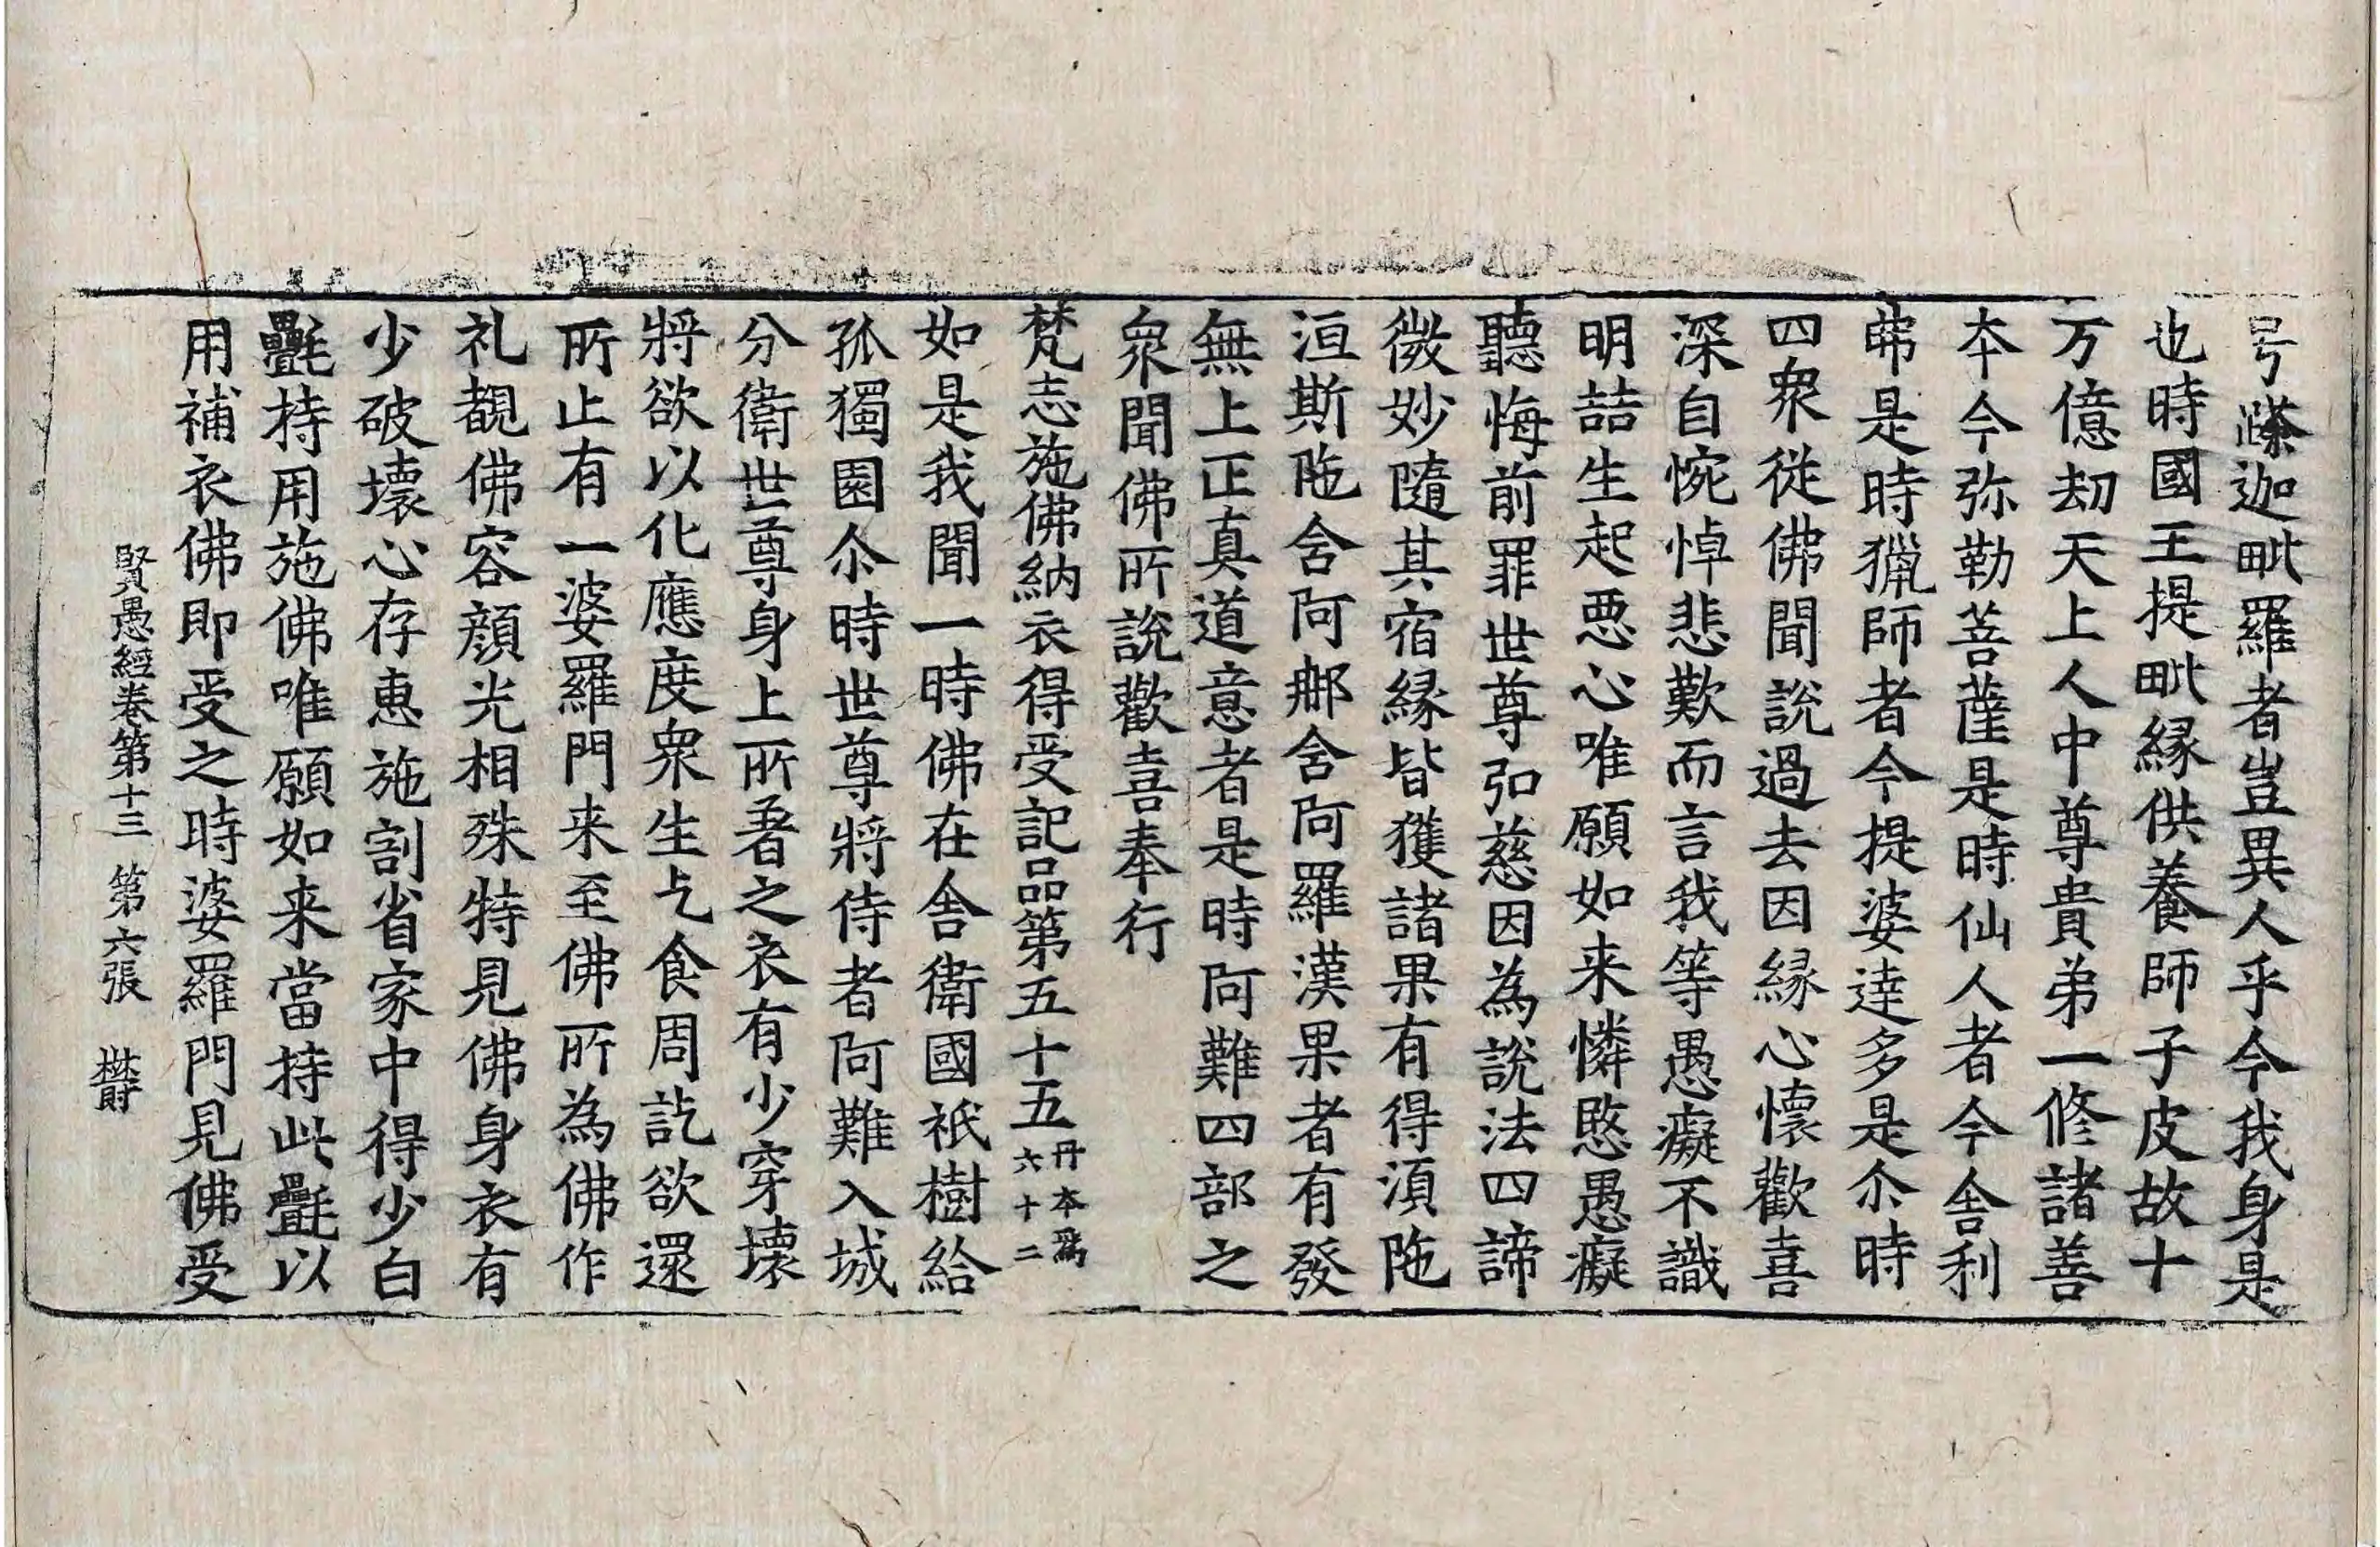 号㯂迦毗羅者豈異人乎今我身是
也時國王提毗緣供養師子皮故十
万億劫天上人中尊貴弟一修諸善
本今弥勒菩薩是時仙人者今舍利
弗是時獵師者今提婆達多是尒時
四衆從佛聞說過去因緣心懷歡喜
深自惋悼悲歎而言我等愚癡不識
明喆生起悪心唯願如来憐愍愚癡
聽悔前罪世尊弘慈因為說法四諦
微妙隨其宿緣皆獲諸果有得湏陁
洹斯陁含阿那含阿羅漢果者有發
無上正真道意者是時阿難四部之
衆聞佛所說歡喜奉行
梵志施佛納衣得受記品第五十五 丹本爲六十二
如是我聞一時佛在舍衛國祇樹給
孤獨園尒時世尊將侍者阿難入城
分衛世尊身上所著之衣有少穿壞
將欲以化應度衆生乞食周訖欲還
所止有一婆羅門来至佛所為佛作
礼覩佛容顔光相殊特見佛身衣有
少破壞心存惠施割省家中得少白
㲲持用施佛唯願如来當持此㲲以
用補衣佛即受之時婆羅門見佛受
賢愚經卷第十三 第六張